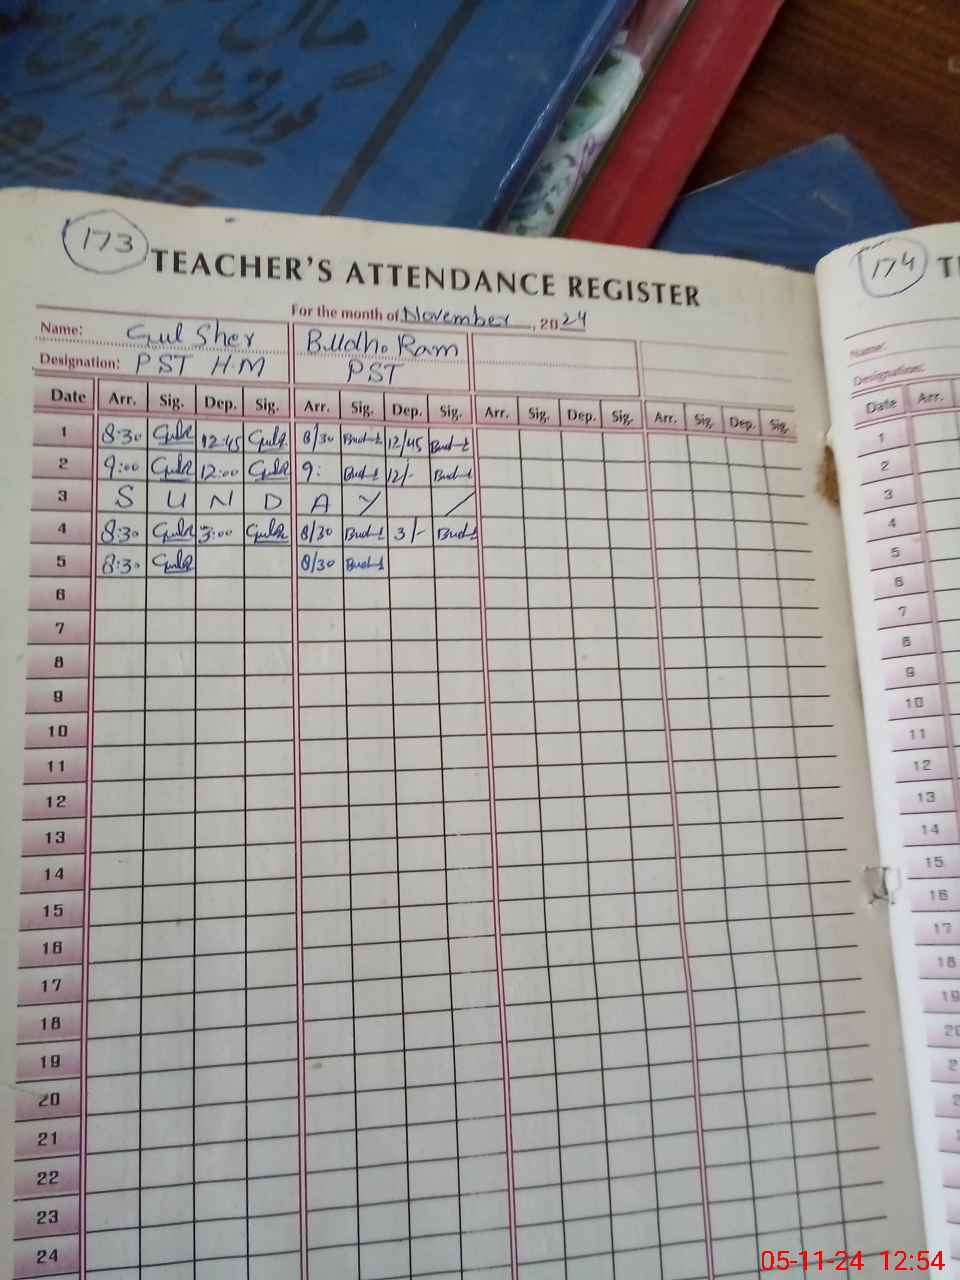 مال
گورنمنٹ پرائمری
173
TEACHER'S ATTENDANCE REGISTER
For the month of November, 2024
Name: Gul Sher Budho Ram
Designation: PST H.M PST
Date Arr. Sig. Dep. Sig. Arr. Sig. Dep. Sig. Arr. Sig. Dep. Sig. Arr. Sig. Dep. Sig.
1 8:30 Gulsh 12:45 Gulsh 8/30 Budh 12/45 Budh
2 9:00 Gulsh 12:00 Gulsh 9: Budh 12/- Budh
3 S U N D A Y /
4 8:30 Gulsh 3:00 Gulsh 8/30 Budh 3/- Budh
5 8:30 Gulsh 8/30 Budh
6
7
8
9
10
11
12
13
14
15
16
17
18
19
20
21
22
23
24
174
T
Name:
Designation:
Date Arr.
1
2
3
4
5
6
7
8
9
10
11
12
13
14
15
16
17
18
19
05-11-24 12:54